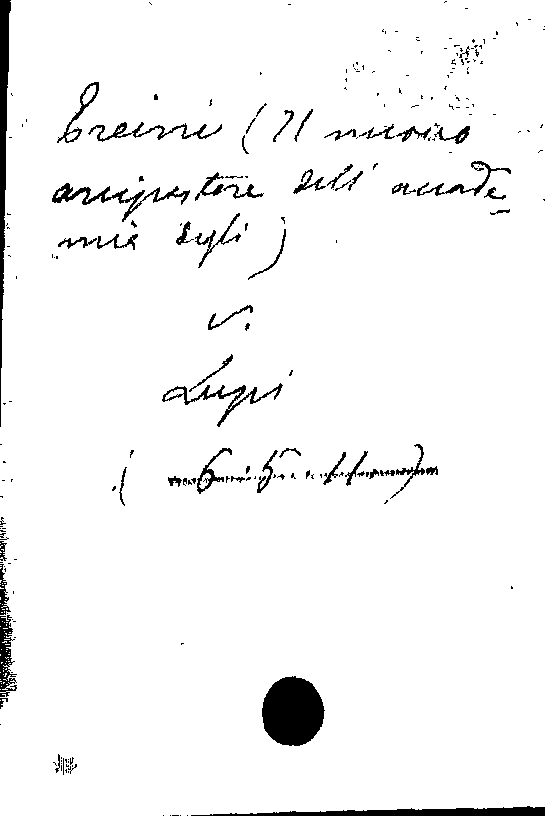 Ereini (Il nuovo
arcipastore dell' accade
mia degli)
v.
Lupi